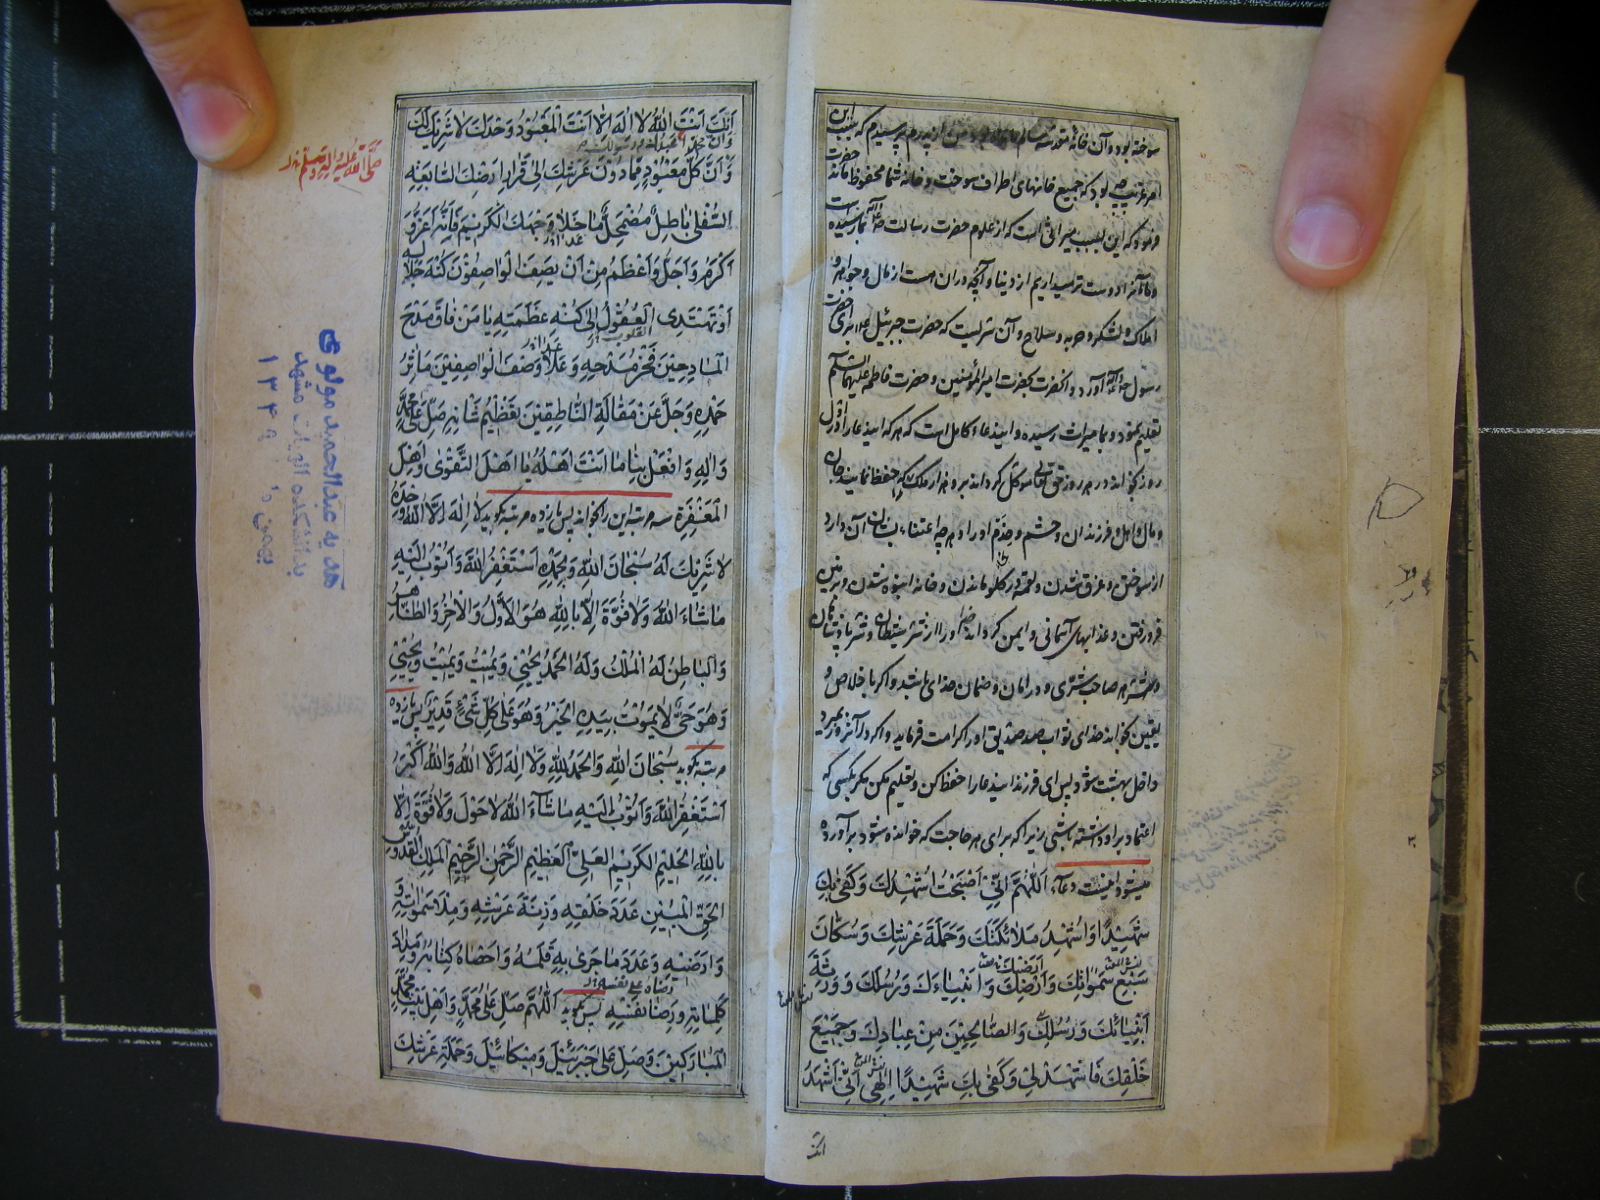 سوخته بود و آن خانه مقدسه سالم مانده از پدرم پرسیدم که سبب این
امر غریب چه بود که جمیع خانهای اطراف سوخت و خانه شما محفوظ ماند حضرت
فرمود که این بسبب میراثی است که از علوم حضرت رسالت صلی الله علیه و آله بما رسیده است
و ما آنرا دوست تر میداریم از دنیا و آنچه در آن است از مال و جواهر و
املاک و لشکر و حربه و سلاح و آن سریست که حضرت جبرئیل علیه السلام برای حضرت
رسول صلی الله علیه و آله آورد و آنحضرت بحضرت امیر المؤمنین و حضرت فاطمه علیهما السلم
تعلیم نمود و بما میراث رسیده و این دعاء کامل است که هر که این دعا را در اول
روز بخواند در هر روز حق تعالی موکل گرداند بر او هزار ملک که حفظ نمایند جان
و مال و اهل و فرزندان و حشم و خدم او را و هر چه اعتناء بشان آن دارد
از سوختن و غرق شدن و لقمه در گلو ماندن و خانه انبوه شدن و بزمین
فرو رفتن و عذابهای آسمانی و ایمن گرداند خدا او را از شر شیطان و شر پادشاهان
و شر هر صاحب شری و در امان و ضمان خدای باشد و اگر با خلاص و
یقین بخواند خدای ثواب صد صدیق او را کرامت فرماید و اگر در آنروز بمیرد
داخل بهشت شود پس ای فرزند این دعا را حفظ کن و تعلیم مکن مگر بکسی که
اعتماد بر او داشته باشی زیرا که برای هر حاجت که خوانده شود بر آورده
میشود اینست دعاء اَللّٰهُمَّ اِنّی اَصْبَحْتُ اُشْهِدُكَ وَكَفٰی بِكَ
شَهِیدًا وَاُشْهِدُ مَلائِكَتَكَ وَحَمَلَةَ عَرْشِكَ وَسُكّانَ
سَبْعِ سَمٰوٰاتِكَ وَاَرَضِیكَ وَاَنْبِیاءَكَ وَرُسُلَكَ وَوَرَثَةَ
اَنْبِیائِكَ وَرُسُلِكَ وَالصّالِحِینَ مِنْ عِبادِكَ وَجَمِیعَ
خَلْقِكَ فَاشْهَدْ لِی وَكَفٰی بِكَ شَهِیدًا اِلٰهِی اِنّی اَشْهَدُ
انک
اَنَّكَ اَنْتَ اللّٰهُ لا اِلٰهَ اِلّا اَنْتَ الْمَعْبُودُ وَحْدَكَ لا شَرِیكَ لَكَ
وَاَنَّ مُحَمَّدًا عَبْدُكَ وَرَسُولُكَ
صَلَّی اللّٰهُ عَلَیْهِ وَآلِهِ وَسَلَّمَ
وَاَنَّ كُلَّ مَعْبُودٍ مِمّا دُونَ عَرْشِكَ اِلٰی قَرارِ اَرْضِكَ السّابِعَةِ
السُّفْلٰی باطِلٌ مُضْمَحِلٌّ ما خَلا وَجْهَكَ الْكَرِیمَ فَاِنَّهُ اَعَزُّ وَ
اَكْرَمُ وَاَجَلُّ وَاَعْظَمُ مِنْ اَنْ یَصِفَ الْواصِفُونَ كُنْهَ جَلالِهِ
اَوْ تَهْتَدِیَ الْعُقُولُ اِلٰی كُنْهِ عَظَمَتِهِ یا مَنْ فاقَ مَدْحَ
الْمادِحِینَ فَخْرُ مَدْحِهِ وَعَلا وَصْفَ الْواصِفِینَ مَآثِرُ
حَمْدِهِ وَجَلَّ عَنْ مَقالَةِ النّاطِقِینَ تَعْظِیمُ شَانِهِ صَلِّ عَلٰی مُحَمَّدٍ
وَآلِهِ وَافْعَلْ بِنا ما اَنْتَ اَهْلُهُ یا اَهْلَ التَّقْوٰی وَاَهْلَ
الْمَغْفِرَةِ سه مرتبه این را بخواند پس یازده مرتبه بگوید لا اِلٰهَ اِلَّا اللّٰهُ وَحْدَهُ
لا شَرِیكَ لَهُ سُبْحانَ اللّٰهِ وَبِحَمْدِهِ اَسْتَغْفِرُ اللّٰهَ وَاَتُوبُ اِلَیْهِ
ماشاءَ اللّٰهُ وَلا قُوَّةَ اِلّا بِاللّٰهِ هُوَ الْاَوَّلُ وَالْآخِرُ وَالظّاهِرُ
وَالْباطِنُ لَهُ الْمُلْكُ وَلَهُ الْحَمْدُ یُحْیِی وَیُمِیتُ وَیُمِیتُ وَیُحْیِی
وَهُوَ حَیٌّ لا یَمُوتُ بِیَدِهِ الْخَیْرُ وَهُوَ عَلٰی كُلِّ شَیْءٍ قَدِیرٌ پس یازده
مرتبه بگوید سُبْحانَ اللّٰهِ وَالْحَمْدُ لِلّٰهِ وَلا اِلٰهَ اِلَّا اللّٰهُ وَاللّٰهُ اَكْبَرُ
اَسْتَغْفِرُ اللّٰهَ وَاَتُوبُ اِلَیْهِ ماشاءَ اللّٰهُ لا حَوْلَ وَلا قُوَّةَ اِلّا
بِاللّٰهِ الْحَلِیمِ الْكَرِیمِ الْعَلِیِّ الْعَظِیمِ الرَّحْمٰنِ الرَّحِیمِ الْمَلِكِ الْقُدُّوسِ
الْحَقِّ الْمُبِینِ عَدَدَ خَلْقِهِ وَزِنَةَ عَرْشِهِ وَمِلْأَ سَمٰوٰاتِهِ وَ
وَاَرْضِهِ وَعَدَدَ ما جَرٰی بِهِ قَلَمُهُ وَاَحْصاهُ كِتابُهُ وَمِدادَ
كَلِماتِهِ وَرِضا نَفْسِهِ پس بگوید اَللّٰهُمَّ صَلِّ عَلٰی مُحَمَّدٍ وَاَهْلِ بَیْتِ مُحَمَّدٍ
الْمُبارَكِینَ وَصَلِّ عَلٰی جَبْرَئِیلَ وَمِیكائِیلَ وَحَمَلَةِ عَرْشِكَ
هدیه عبدالحمید مولوی
بدانشکده الهیات مشهد
بهمن ماه
۱۳۴۹